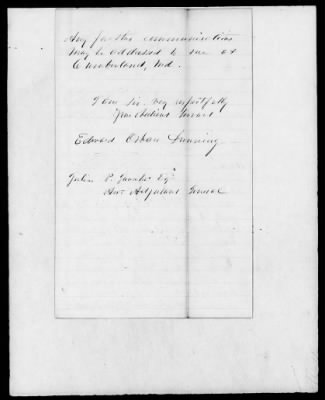 Any further communications
may be addressed to me at
Cumberland, Md.
I am Sir very respectfully
Your Obedient Servant
Edward
Julius P. Garesche Esqr
Asst Adjutant General